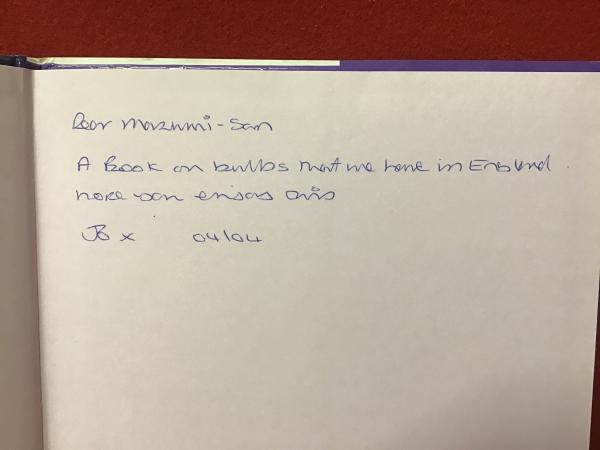 Dear Marumi-San
A Book on bulbs that we have in England.
hope you enjoy this
JB x 04/04